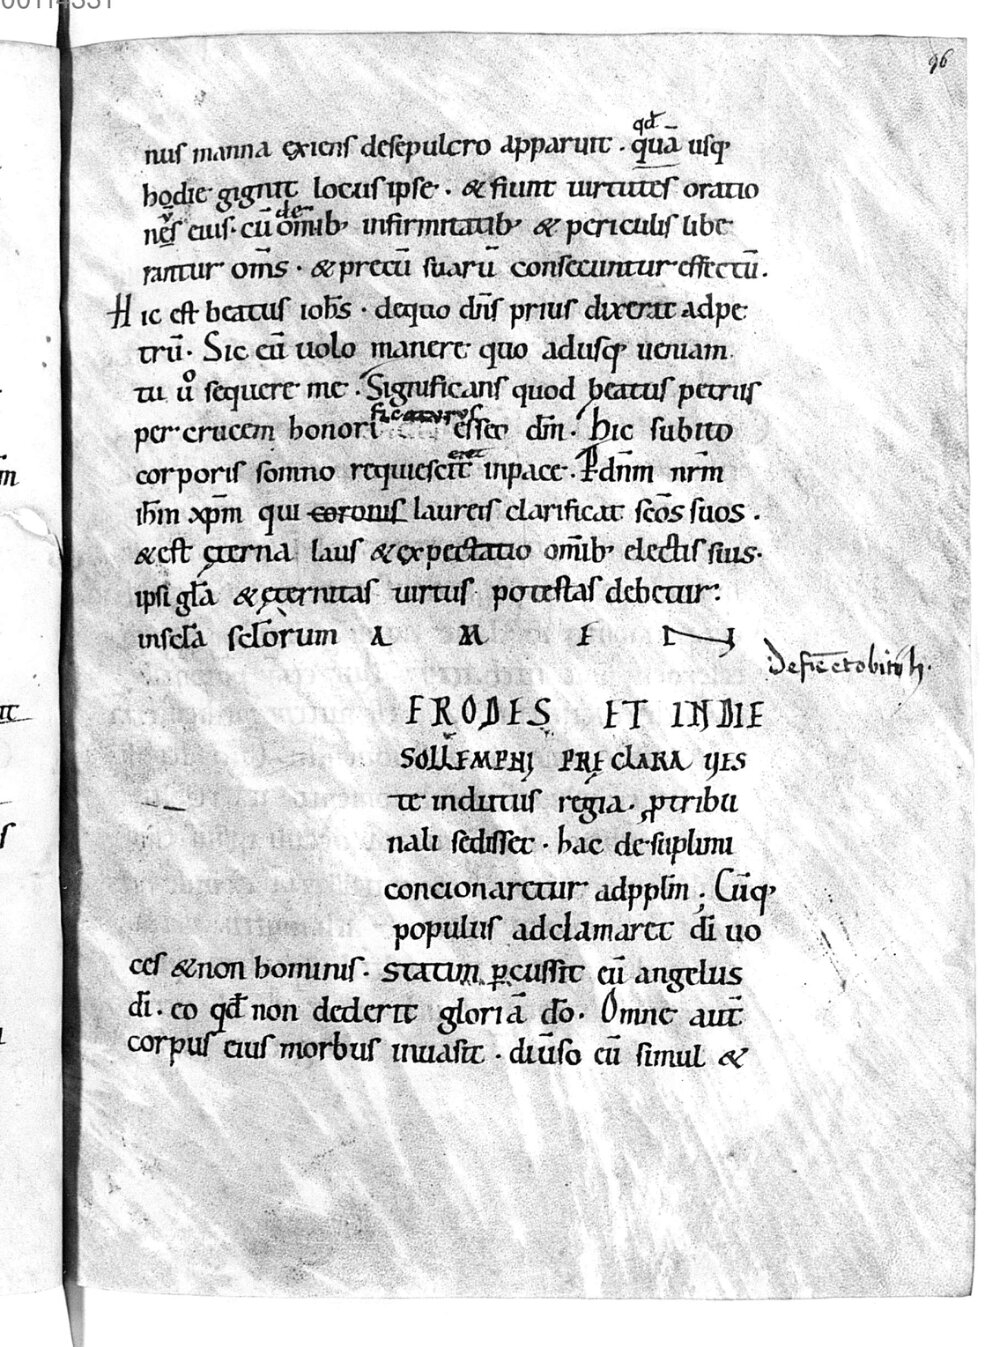 96
qđ
nus manna exiens desepulcro apparuit . quā usq;
hodie gignit locus ipse . & fiunt uirtutes oratio
de
nēs eius . cū omīb; infirmitatib; & periculis libe
rantur om̄s . & precū suarū consecuntur effectū .
Hic est beatus ioħs . dequo dn̄s prius dixerat adpe
trū . Sic eū uolo manere quo adusq; ueniam .
tu ů sequere me . Significans quod beatus petrus
ficaturus
per crucem honori esset dm̄ . hic subito
corporis somno requiescit inpace . P dn̄m nr̄m
iħm xp̄m qui coronis laureis clarificat sc̄os suos .
& est ęterna laus & expectatio om̄ib; electis suis .
ipsi gl̄a & ęternitas uirtus potestas debetur .
insc̄la scl̄orum A M E N
ERODES ET IN DIE
SOLLEMPNI PRECLARA UES
te indutus regia . ꝓtribu
nali sedisset . hac desuplimi
concionaretur adpplm̄ ; Cūq;
populus adclamaret di uo
ces & non hominis . statim ꝑcussit eū angelus
dī . eo qđ non dederit gloriā dō . Omne aut̄
corpus eius morbus inuasit . diūso eū simul &